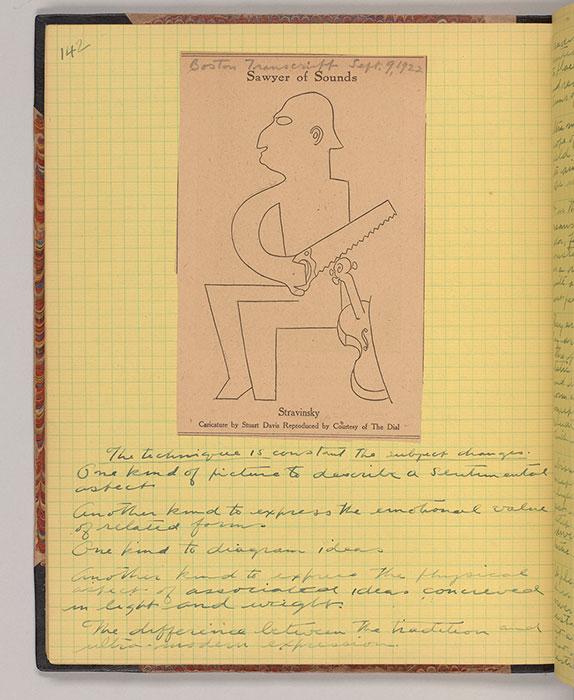 142
Boston Transcript Sept. 9, 1922
Sawyer of Sounds
Stravinsky
Caricature by Stuart Davis Reproduced by Courtesy of The Dial
The technique is constant the subject changes.
One kind of picture to describe a sentimental
aspect
Another kind to express the emotional value
of related forms.
One kind to diagram ideas
Another kind to express the physical
aspect of associated ideas conceived
in light and weight.
The difference between the tradition and
ultra-modern expression.